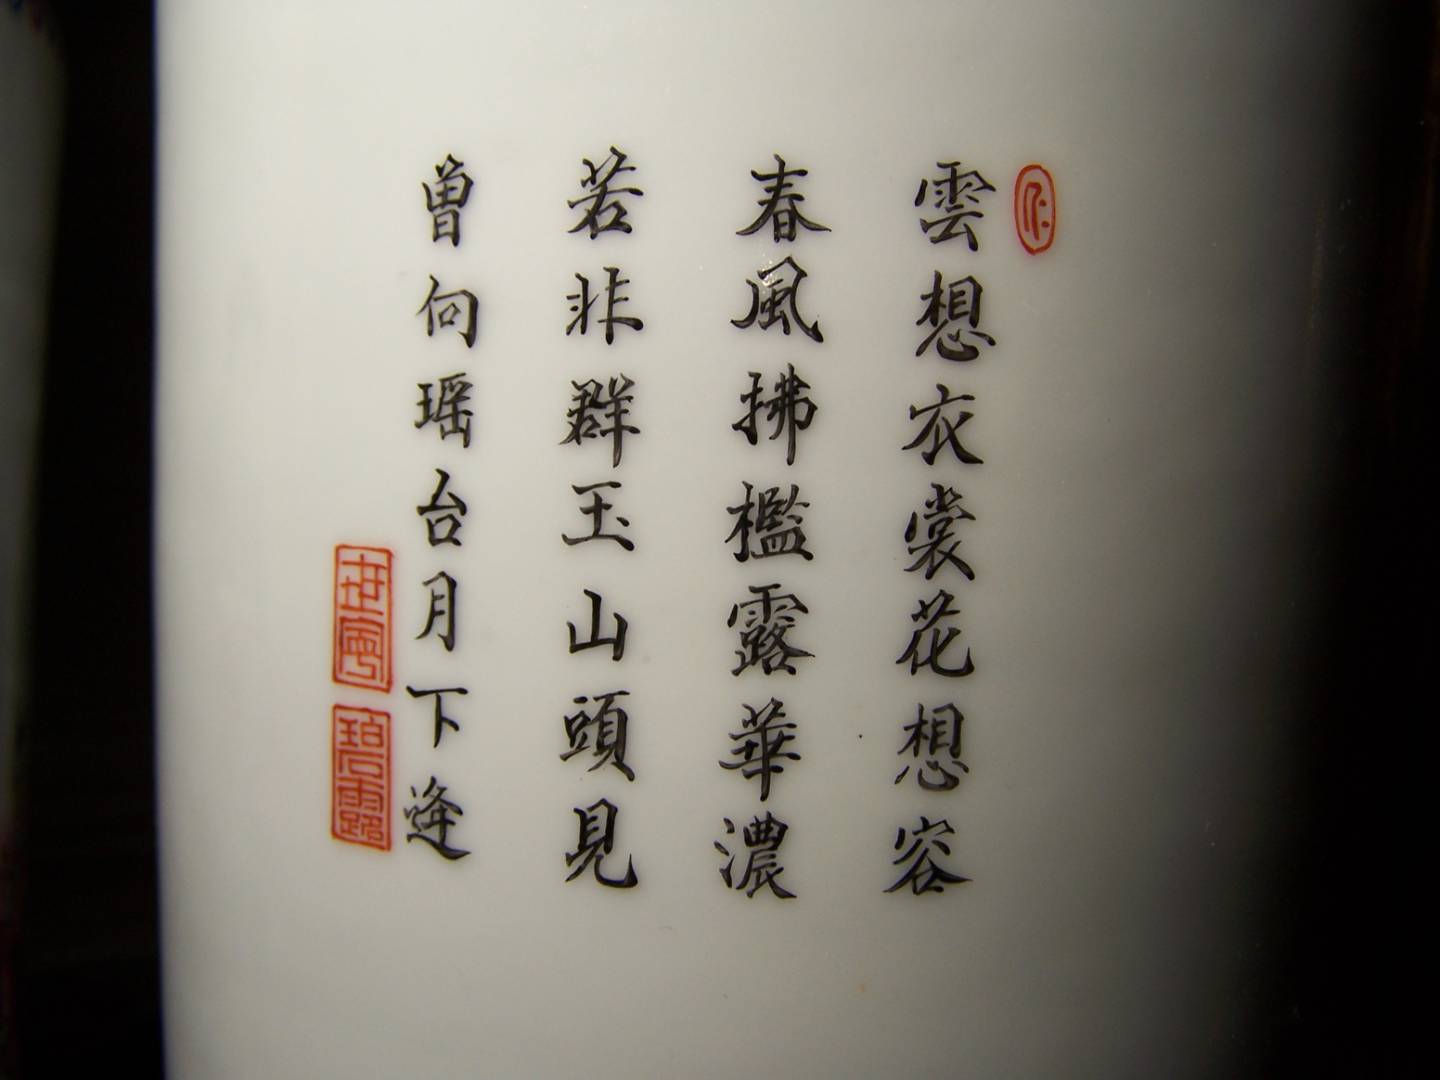 雲想衣裳花想容
春風拂檻露華濃
若非群玉山頭見
曾向瑶台月下逢
世寧
碧露